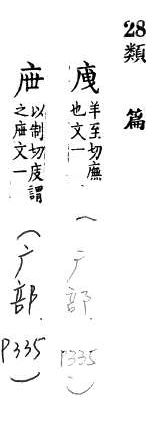 28類篇
羊至切廡
也文一
（广部 P335）
以制切庋謂
之文一
（广部 P335）